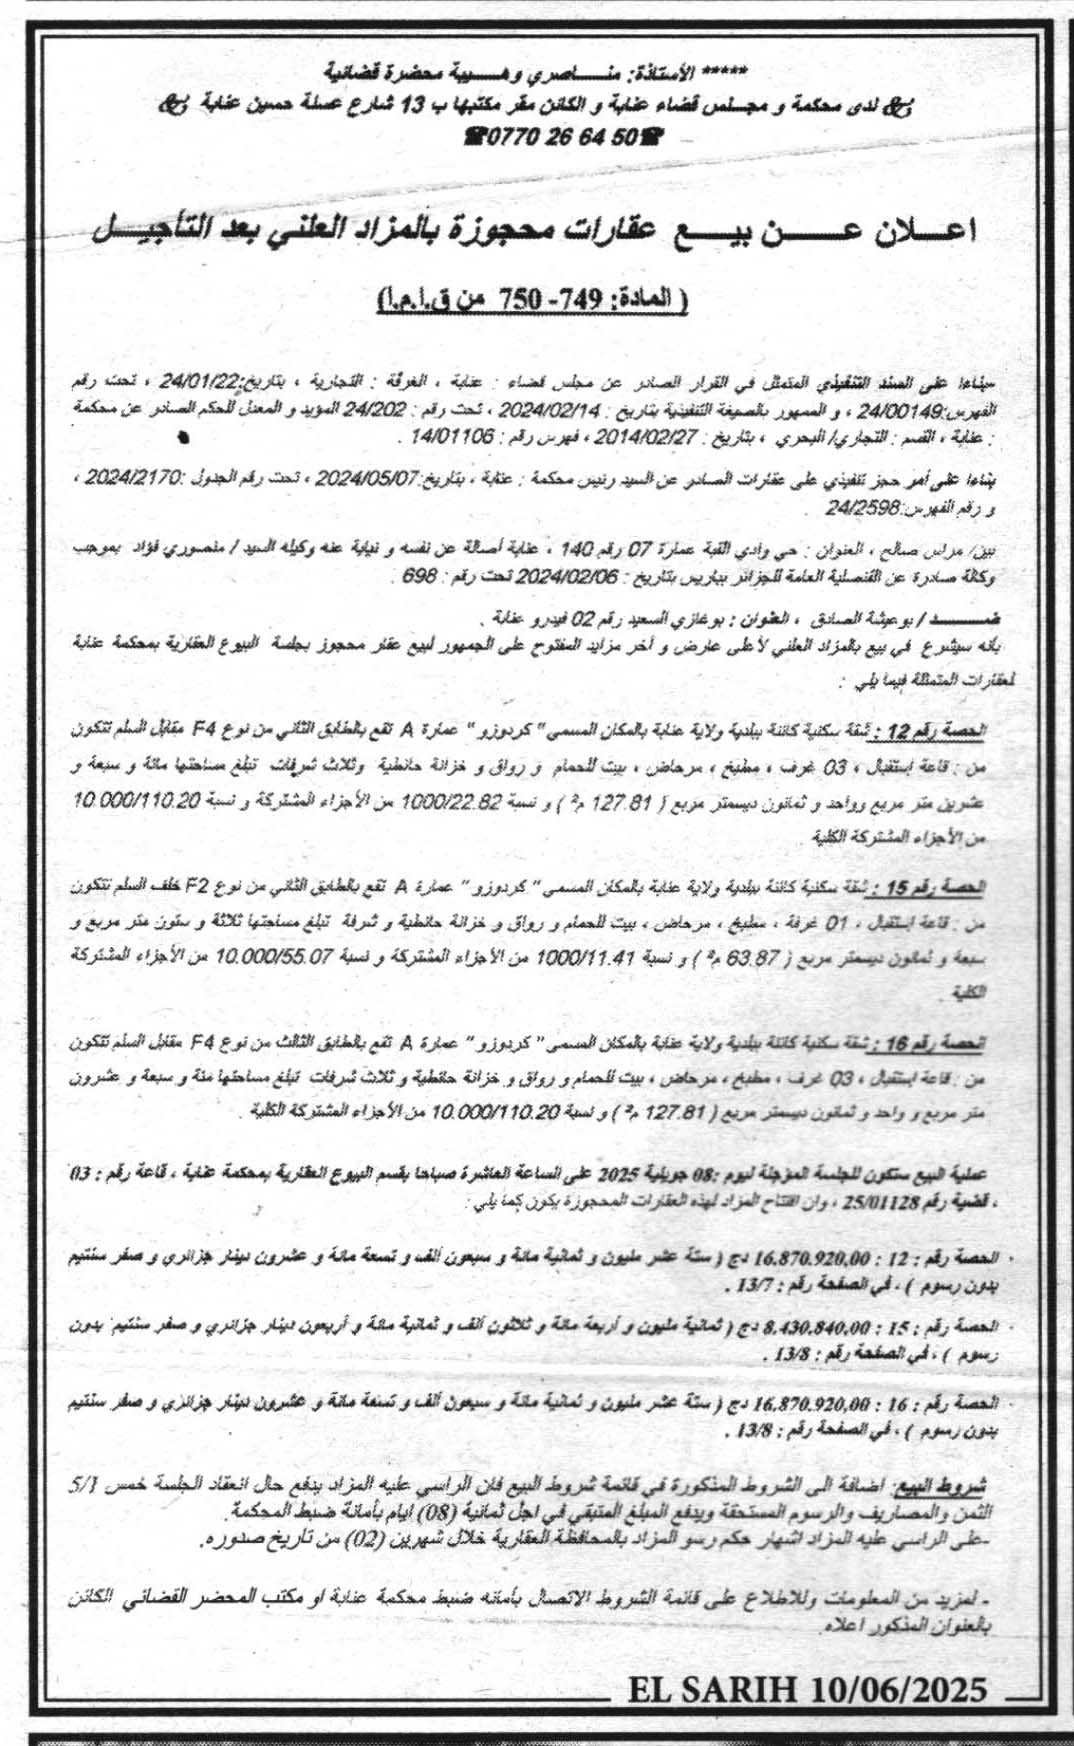 ***** الأستاذة: منـــاصري وهـــيبة محضرة قضائية
لدى محكمة و مجـلس قضاء عنابة و الكائن مقر مكتبها ب 13 شارع عسلة حسين عنابة
☎0770 26 64 50☎
اعـــلان عـــــن بيـــــع عقارات محجوزة بالمزاد العلني بعد التأجيـــل
( المادة: 749- 750 من ق.ا.م.ا)
-بناءا على السند التنفيذي المتمثل في القرار الصادر عن مجلس قضاء : عنابة ، الغرفة : التجارية ، بتاريخ:24/01/22 ، تحت رقم
الفهرس:24/00149 ، و الممهور بالصيغة التنفيذية بتاريخ : 2024/02/14 ، تحت رقم : 24/202 المؤيد و المعدل للحكم الصادر عن محكمة
: عنابة ، القسم : التجاري/ البحري ، بتاريخ : 2014/02/27 ، فهرس رقم : 14/01106 .
بناءا على أمر حجز تنفيذي على عقارات الصادر عن السيد رئيس محكمة : عنابة ، بتاريخ:2024/05/07 ، تحت رقم الجدول :2024/2170 ،
و رقم الفهرس:24/2598 .
بين/ مراس صالح ، العنوان : حي وادي القبة عمارة 07 رقم 140 ، عنابة أصالة عن نفسه و نيابة عنه وكيله السيد / منصوري فؤاد بموجب
وكالة صادرة عن القنصلية العامة للجزائر بباريس بتاريخ : 2024/02/06 تحت رقم : 698 .
ضـــــد / بوعيشة الصادق ، العنوان : بوغازي السعيد رقم 02 فيدرو عنابة .
بأنه سيشرع في بيع بالمزاد العلني لأعلى عارض و أخر مزايد المفتوح على الجمهور لبيع عقار محجوز بجلسة البيوع العقارية بمحكمة عنابة
لعقارات المتمثلة فيما يلي :
الحصة رقم 12 : شقة سكنية كائنة ببلدية ولاية عنابة بالمكان المسمى " كردوزو" عمارة A تقع بالطابق الثاني من نوع F4 مقابل السلم تتكون
من : قاعة استقبال ، 03 غرف ، مطبخ ، مرحاض ، بيت للحمام و رواق و خزانة حائطية وثلاث شرفات تبلغ مساحتها مائة و سبعة و
عشرين متر مربع وواحد و ثمانون ديسمتر مربع ( 127.81 م² ) و نسبة 1000/22.82 من الأجزاء المشتركة و نسبة 10.000/110.20
من الأجزاء المشتركة الكلية
الحصة رقم 15 : شقة سكنية كائنة ببلدية ولاية عنابة بالمكان المسمى " كردوزو" عمارة A تقع بالطابق الثاني من نوع F2 خلف السلم تتكون
من : قاعة استقبال ، 01 غرفة ، مطبخ ، مرحاض ، بيت للحمام و رواق و خزانة حائطية و شرفة تبلغ مساحتها ثلاثة و ستون متر مربع و
سبعة و ثمانون ديسمتر مربع ( 63.87 م² ) و نسبة 1000/11.41 من الأجزاء المشتركة و نسبة 10.000/55.07 من الأجزاء المشتركة
الكلية .
الحصة رقم 16 : شقة سكنية كائنة ببلدية ولاية عنابة بالمكان المسمى " كردوزو" عمارة A تقع بالطابق الثالث من نوع F4 مقابل السلم تتكون
من : قاعة استقبال ، 03 غرف ، مطبخ ، مرحاض ، بيت للحمام و رواق و خزانة حائطية و ثلاث شرفات تبلغ مساحتها مئة و سبعة و عشرون
متر مربع و واحد و ثمانون ديسمتر مربع ( 127.81 م² ) و نسبة 10.000/110.20 من الأجزاء المشتركة الكلية .
عملية البيع ستكون للجلسة المؤجلة ليوم :08 جويلية 2025 على الساعة العاشرة صباحا بقسم البيوع العقارية بمحكمة عنابة ، قاعة رقم : 03
، قضية رقم 25/01128 ، وان افتتاح المزاد لهذه العقارات المحجوزة يكون كما يلي :
· الحصة رقم : 12 : 16.870.920,00 دج ( ستة عشر مليون و ثمانية مائة و سبعون ألف و تسعة مائة و عشرون دينار جزائري و صفر سنتيم
بدون رسوم ) ، في الصفحة رقم : 13/7 .
· الحصة رقم : 15 : 8.430.840,00 دج ( ثمانية مليون و أربعة مائة و ثلاثون ألف و ثمانية مائة و أربعون دينار جزائري و صفر سنتيم بدون
رسوم ) ، في الصفحة رقم : 13/8 .
· الحصة رقم : 16 : 16.870.920,00 دج ( ستة عشر مليون و ثمانية مائة و سبعون ألف و تسعة مائة و عشرون دينار جزائري و صفر سنتيم
بدون رسوم ) ، في الصفحة رقم : 13/8 .
شروط البيع: اضافة الى الشروط المذكورة في قائمة شروط البيع فان الراسي عليه المزاد يدفع حال انعقاد الجلسة خمس 5/1
الثمن والمصاريف والرسوم المستحقة ويدفع المبلغ المتبقي في اجل ثمانية (08) ايام بأمانة ضبط المحكمة.
-على الراسي عليه المزاد اشهار حكم رسو المزاد بالمحافظة العقارية خلال شهرين (02) من تاريخ صدوره.
- لمزيد من المعلومات وللاطلاع على قائمة الشروط الاتصال بأمانه ضبط محكمة عنابة او مكتب المحضر القضائي الكائن
بالعنوان المذكور اعلاه.
EL SARIH 10/06/2025